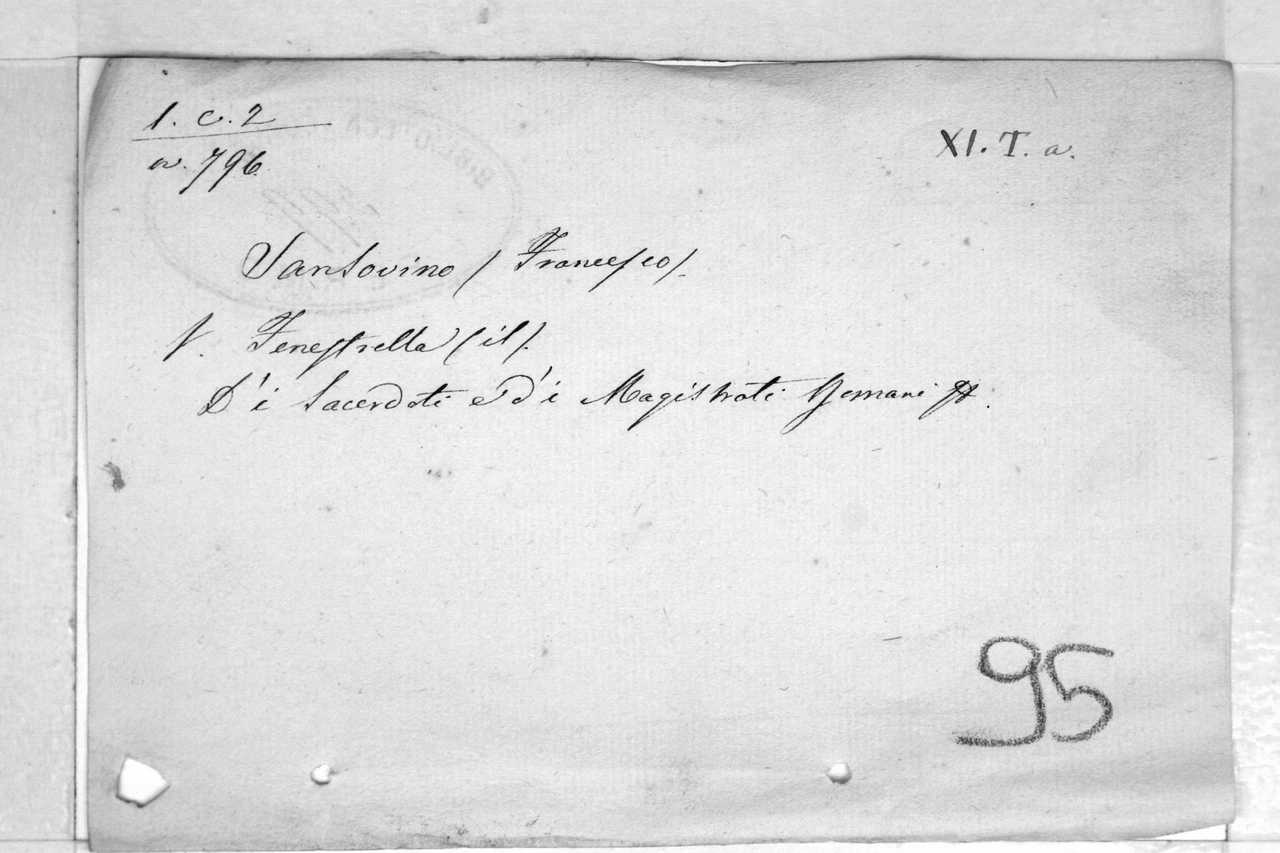 1. c. 2
n. 796.
XI. T. a.
Sansovino (Francesco).
V. Fenestrella (il).
D'i Sacerdoti e d'i Magistrati Romani
95
BIBLIOTECA